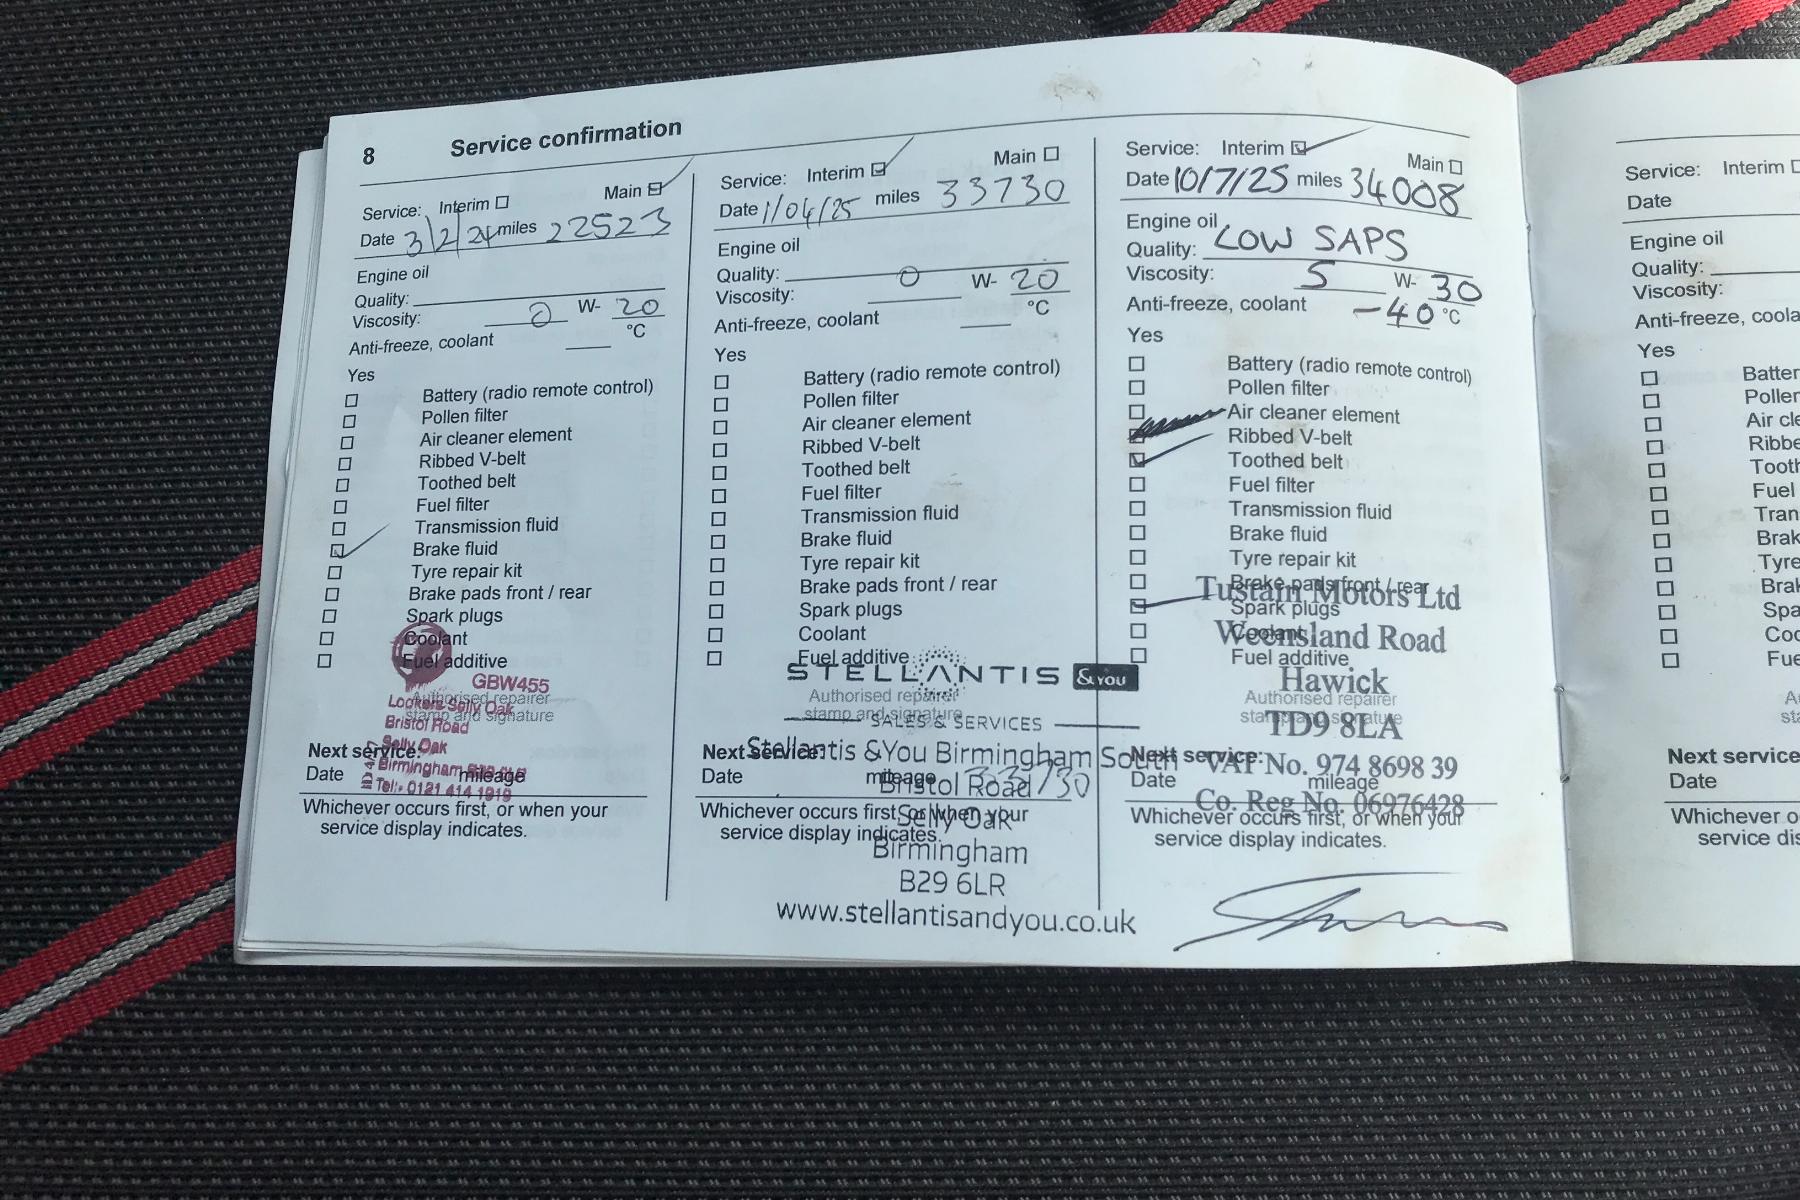 8 Service confirmation
Service: Interim Main
Date 3/2/24 miles 22523
Engine oil
Quality:
Viscosity: 0 W- 20
Anti-freeze, coolant °C
Yes
Battery (radio remote control)
Pollen filter
Air cleaner element
Ribbed V-belt
Toothed belt
Fuel filter
Transmission fluid
Brake fluid
Tyre repair kit
Brake pads front / rear
Spark plugs
Coolant
Fuel additive
GBW455
Authorised repairer
stamp and signature
Lookers Selly Oak
Bristol Road
Selly Oak
Birmingham
Tel:- 0121 414 1919
Next service:
Date mileage
Whichever occurs first, or when your
service display indicates.
Service: Interim Main
Date 1/04/25 miles 33730
Engine oil
Quality:
Viscosity: 0 W- 20
Anti-freeze, coolant °C
Yes
Battery (radio remote control)
Pollen filter
Air cleaner element
Ribbed V-belt
Toothed belt
Fuel filter
Transmission fluid
Brake fluid
Tyre repair kit
Brake pads front / rear
Spark plugs
Coolant
Fuel additive
STELLANTIS &YOU
Authorised repairer
stamp and signature
SALES & SERVICES
Next service:
Stellantis &You Birmingham South
Date mileage
Bristol Road
Whichever occurs first, or when your
Selly Oak
service display indicates.
Birmingham
B29 6LR
www.stellantisandyou.co.uk
Service: Interim Main
Date 10/7/25 miles 34008
Engine oil
Quality: LOW SAPS
Viscosity: 5 W- 30
Anti-freeze, coolant -40 °C
Yes
Battery (radio remote control)
Pollen filter
Air cleaner element
Ribbed V-belt
Toothed belt
Fuel filter
Transmission fluid
Brake fluid
Tyre repair kit
Brake pads front / rear
Tustain Motors Ltd
Spark plugs
Coolant
Weensland Road
Fuel additive
Hawick
Authorised repairer
stamp and signature
TD9 8LA
Next service:
VAT No. 974 8698 39
Date mileage
Co. Reg No. 06976428
Whichever occurs first, or when your
service display indicates.
Service: Interim
Date
Engine oil
Quality:
Viscosity:
Anti-freeze, coola
Yes
Batter
Pollen
Air cle
Ribbe
Tooth
Fuel
Tran
Brak
Tyre
Bra
Spa
Coo
Fue
Next service
Date
Whichever o
service dis